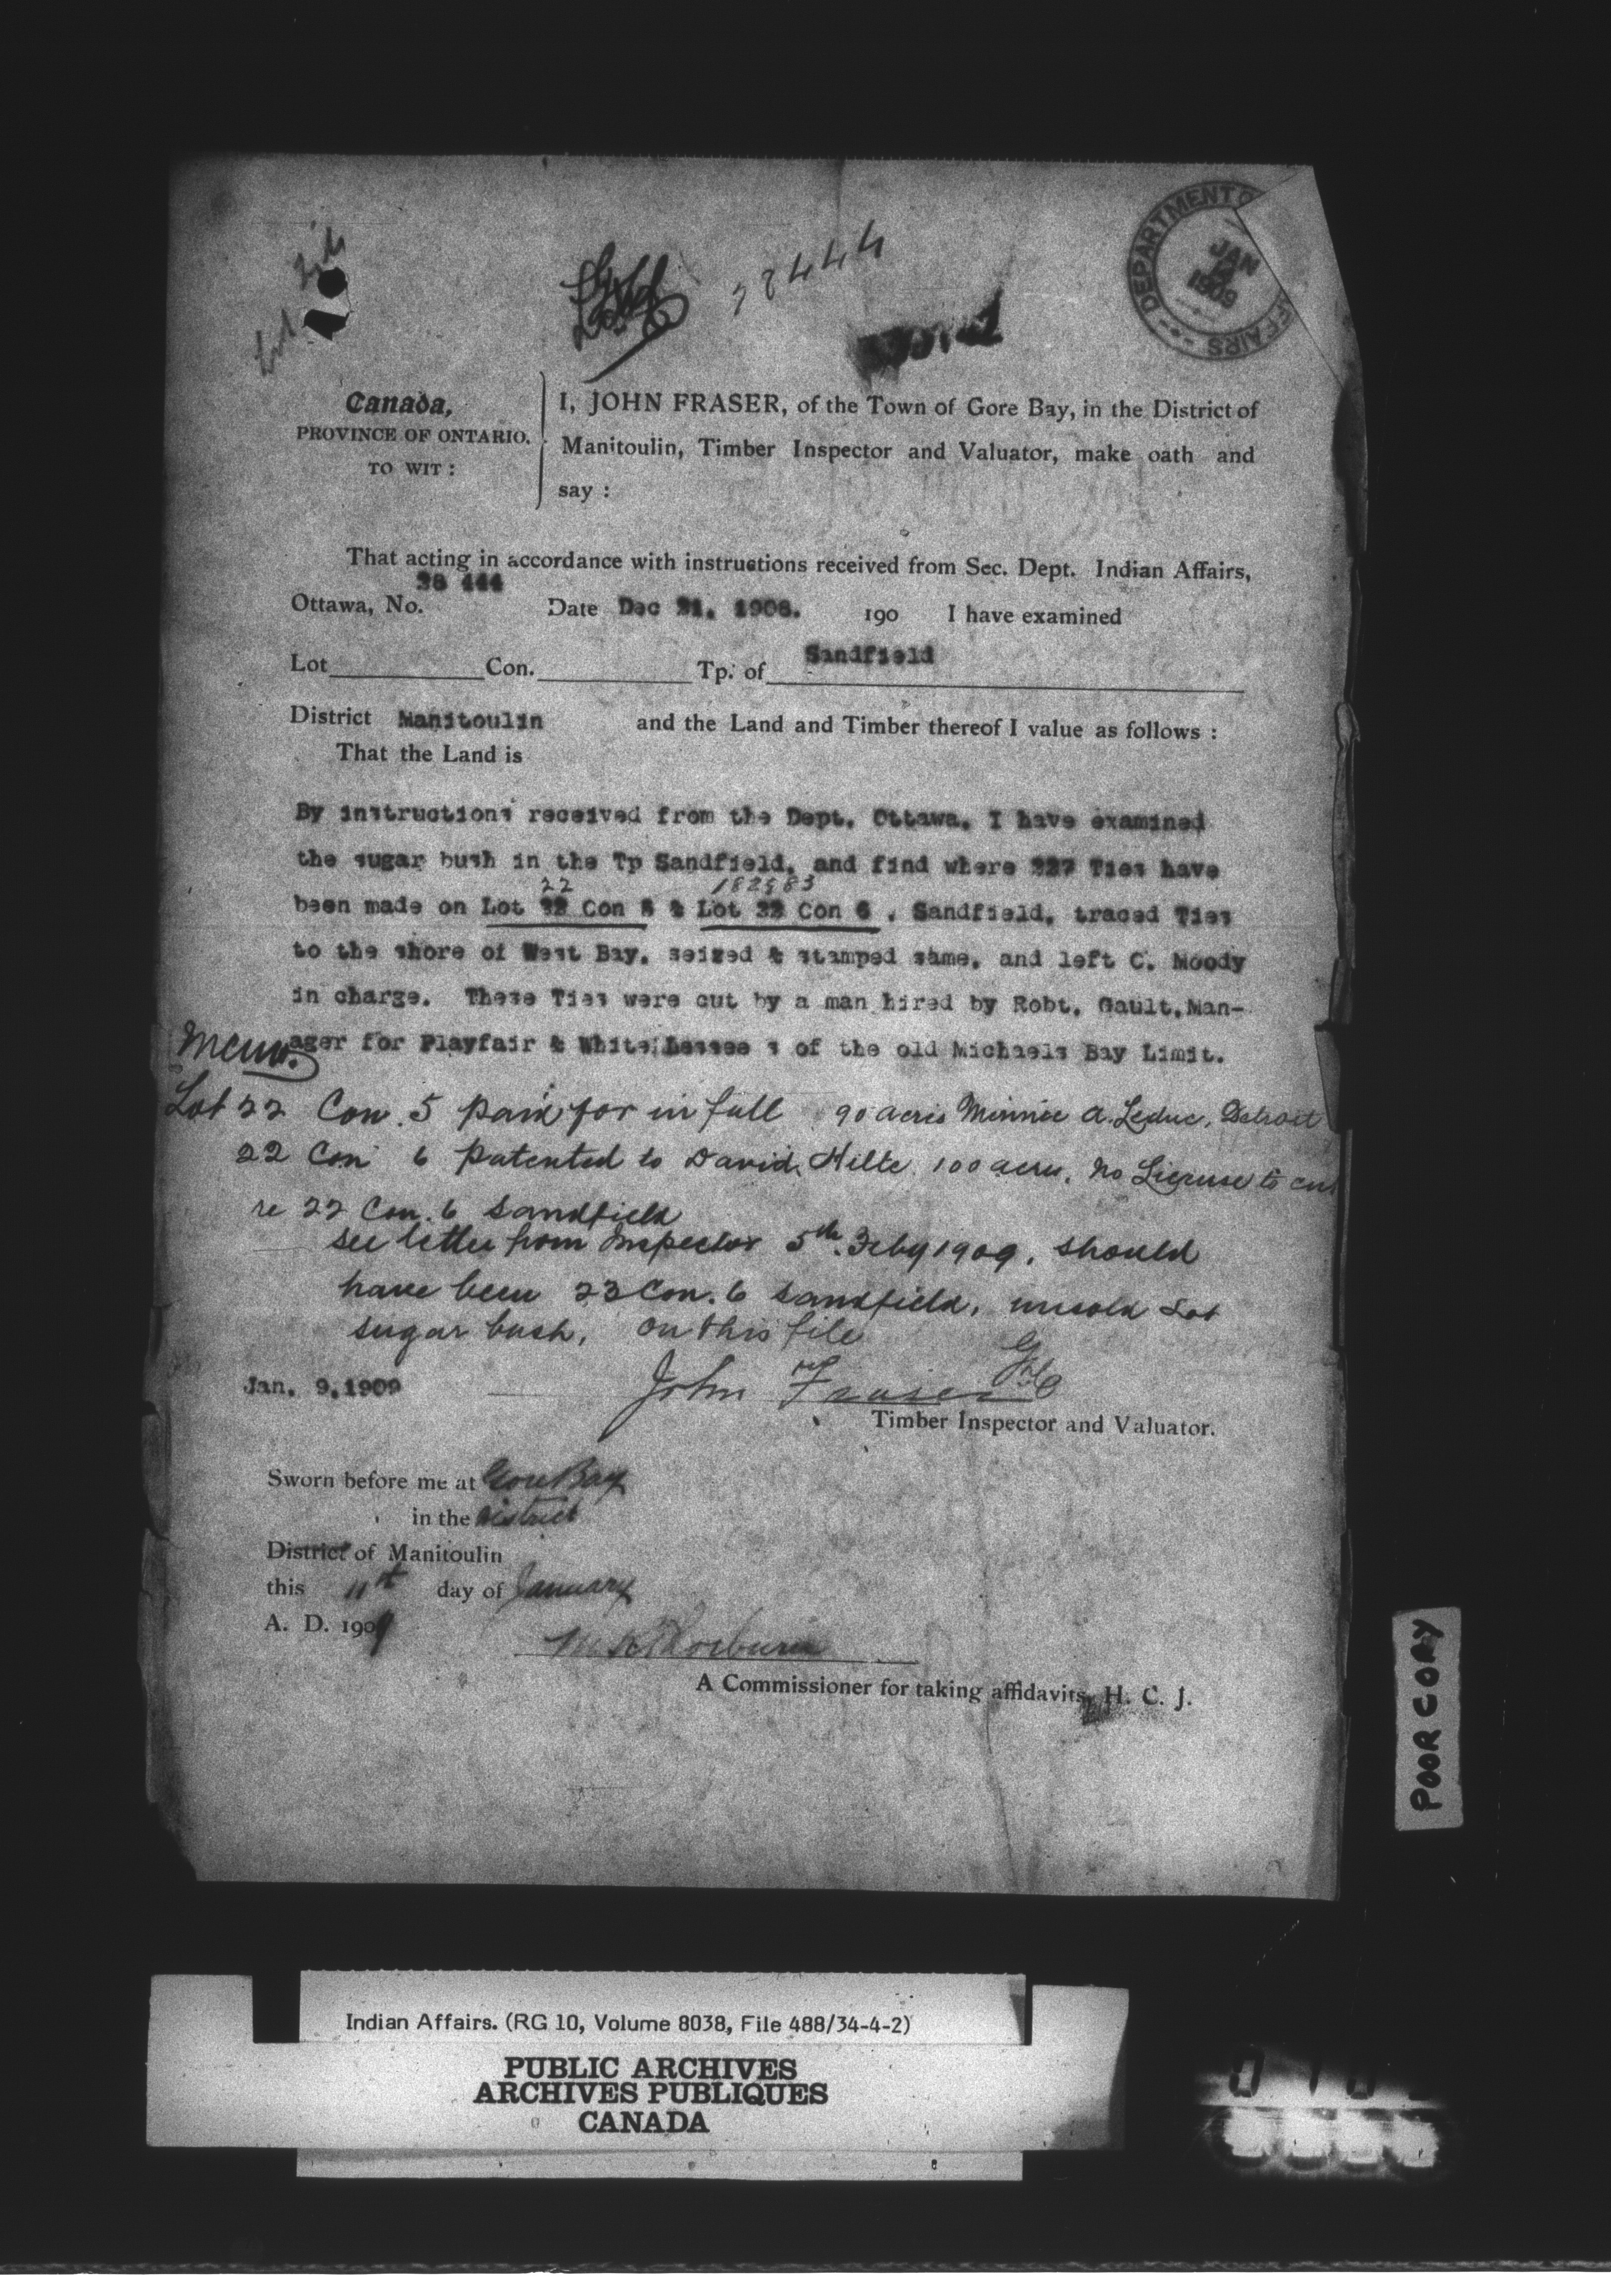 38444
DEPARTMENT O
AFFAIRS
JAN
1909
Canada,
PROVINCE OF ONTARIO.
TO WIT :
I, JOHN FRASER, of the Town of Gore Bay, in the District of
Manitoulin, Timber Inspector and Valuator, make oath and
say :
That acting in accordance with instructions received from Sec. Dept. Indian Affairs,
38 444
Ottawa, No. Date Dec 21. 1908. 190 I have examined
Lot Con. Tp. of Sandfield
District Manitoulin and the Land and Timber thereof I value as follows :
That the Land is
By instructions received from the Dept. Ottawa. I have examined
the sugar bush in the Tp Sandfield, and find where 227 Ties have
22 182983
been made on Lot Con 5 & Lot Con 6 . Sandfield, traced Ties
to the shore of West Bay, seized & stamped same, and left C. Moody
in charge. These Ties were cut by a man hired by Robt. Gault,Man-
ager for Playfair & White,Lessee s of the old Michaels Bay Limit.
Memo.
Lot 22 Con. 5 paid for in full 90 acres Minnie A. Leduc, Detroit
22 Con 6 patented to David Hilte 100 acres. No License to cut
re 22 Con. 6 Sandfield
see letter from Inspector 5th Feby 1909, should
have been 23 Con. 6 Sandfield, unsold Lot
sugar bush, on this file
Jan. 9,1909
John Fraser
Timber Inspector and Valuator.
Sworn before me at Gore Bay
in the District
District of Manitoulin
this 11st day of January
A. D. 1909
A Commissioner for taking affidavits, H. C. J.
POOR COPY
Indian Affairs. (RG 10, Volume 8038, File 488/34-4-2)
PUBLIC ARCHIVES
ARCHIVES PUBLIQUES
CANADA